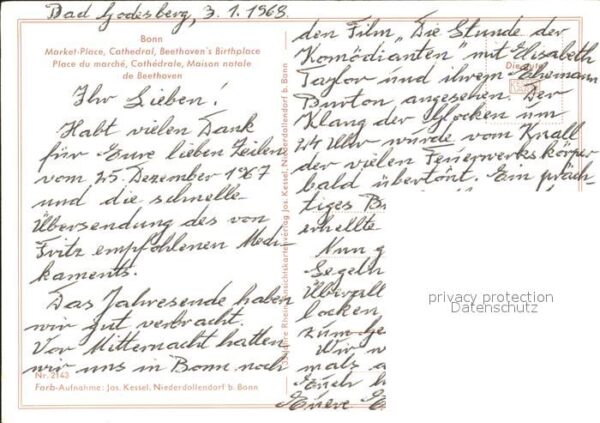 Bad Godesberg, 3.1.1968.
Bonn
Market-Place, Cathedral, Beethoven's Birthplace
Place du marché, Cathédrale, Maison natale
de Beethoven
Ihr Lieben!
Habt vielen Dank
für Eure lieben Zeilen
vom 25. Dezember 1967
und die schnelle
Übersendung des von
Fritz empfohlenen Medi-
kaments.
Das Jahresende haben
wir gut verbracht.
Vor Mitternacht hatten
wir uns in Bonn noch
Nr. 2143
Farb-Aufnahme: Jos. Kessel, Niederdollendorf b. Bonn
Ansichtskartenverlag Jos. Kessel, Niederdollendorf b. Bonn
den Film "Die Stunde der
Komödianten" mit Elisabeth
Taylor und ihrem Ehemann
Burton, angesehen. Der
Klang der Glocken um
24 Uhr wurde vom Knall
der vielen Feuerwerkskörper
bald übertönt. Ein präch-
tiges B
erhellte
Nun g
Segeln
Überall
locken
zum
Wir w
mals a
Euch h
Eure E
privacy protection
Datenschutz